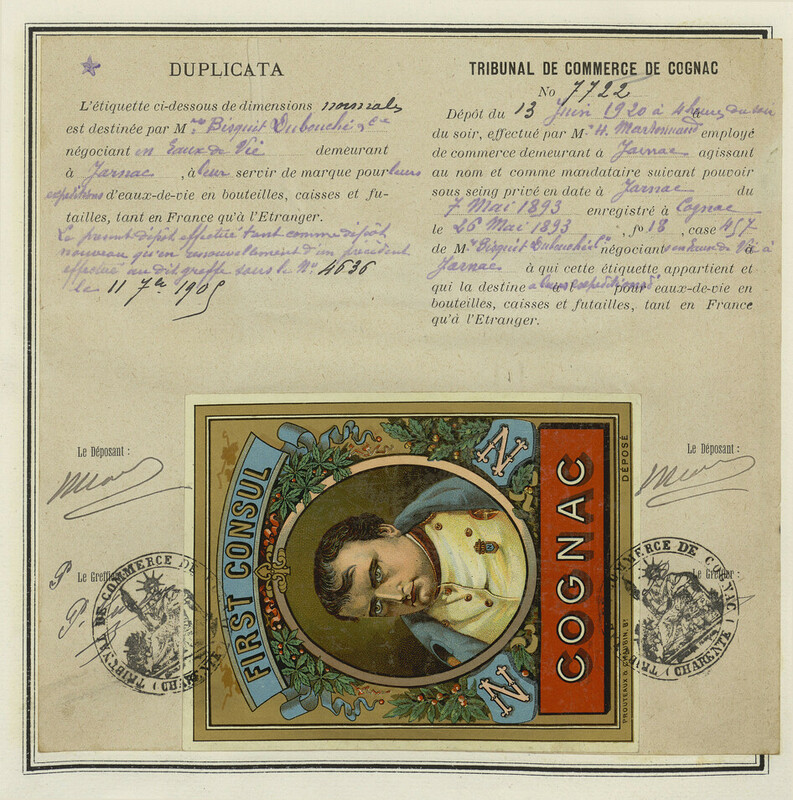 DUPLICATA
L'étiquette ci-dessous de dimensions normales
est destinée par M.rs Bisquit Dubouché & Cie
négociant en Eaux de Vie demeurant
à Jarnac, à leur servir de marque pour leurs
expéditions d'eaux-de-vie en bouteilles, caisses et fu-
tailles, tant en France qu'à l'Etranger.
Le présent dépôt effectué tant comme dépôt
nouveau qu'en renouvellement d'un précédent
effectué au dit greffe sous le No 4636
le 11 7bre 1905
TRIBUNAL DE COMMERCE DE COGNAC
No 7722
Dépôt du 13 Juin 1920 à 4 heures du soir
du soir, effectué par M. H. employé
de commerce demeurant à Jarnac agissant
au nom et comme mandataire suivant pouvoir
sous seing privé en date à Jarnac du
7 Mai 1893 enregistré à Cognac
le 26 Mai 1893, fo 18, case 457
de M.rs Bisquit Dubouché & Cie négociants en Eaux de Vie à
Jarnac à qui cette étiquette appartient et
qui la destine à leurs expéditions d' eaux-de-vie en
bouteilles, caisses et futailles, tant en France
qu'à l'Etranger.
Le Déposant :
Le Déposant :
Le Greffier
Le Greffier :
TRIBUNAL DE COMMERCE DE COGNAC
(CHARENTE)
TRIBUNAL DE COMMERCE DE COGNAC
(CHARENTE)
FIRST CONSUL
N
N
COGNAC
DÉPOSÉ
PROUTEAUX & CHAUBIN, BY